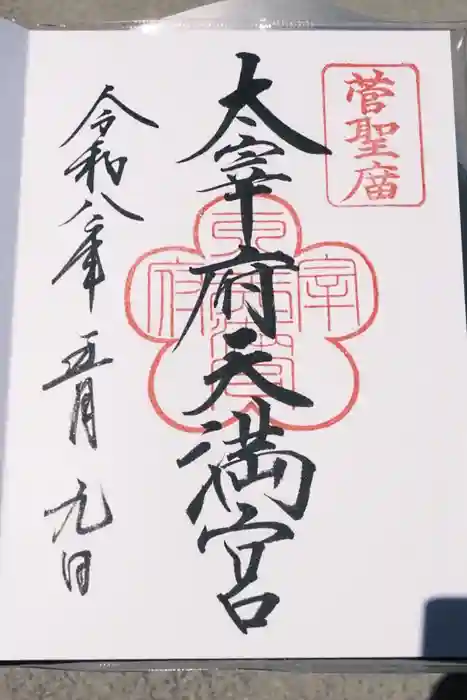 菅聖廟
太宰府天満宮
令和八年 五月 九日